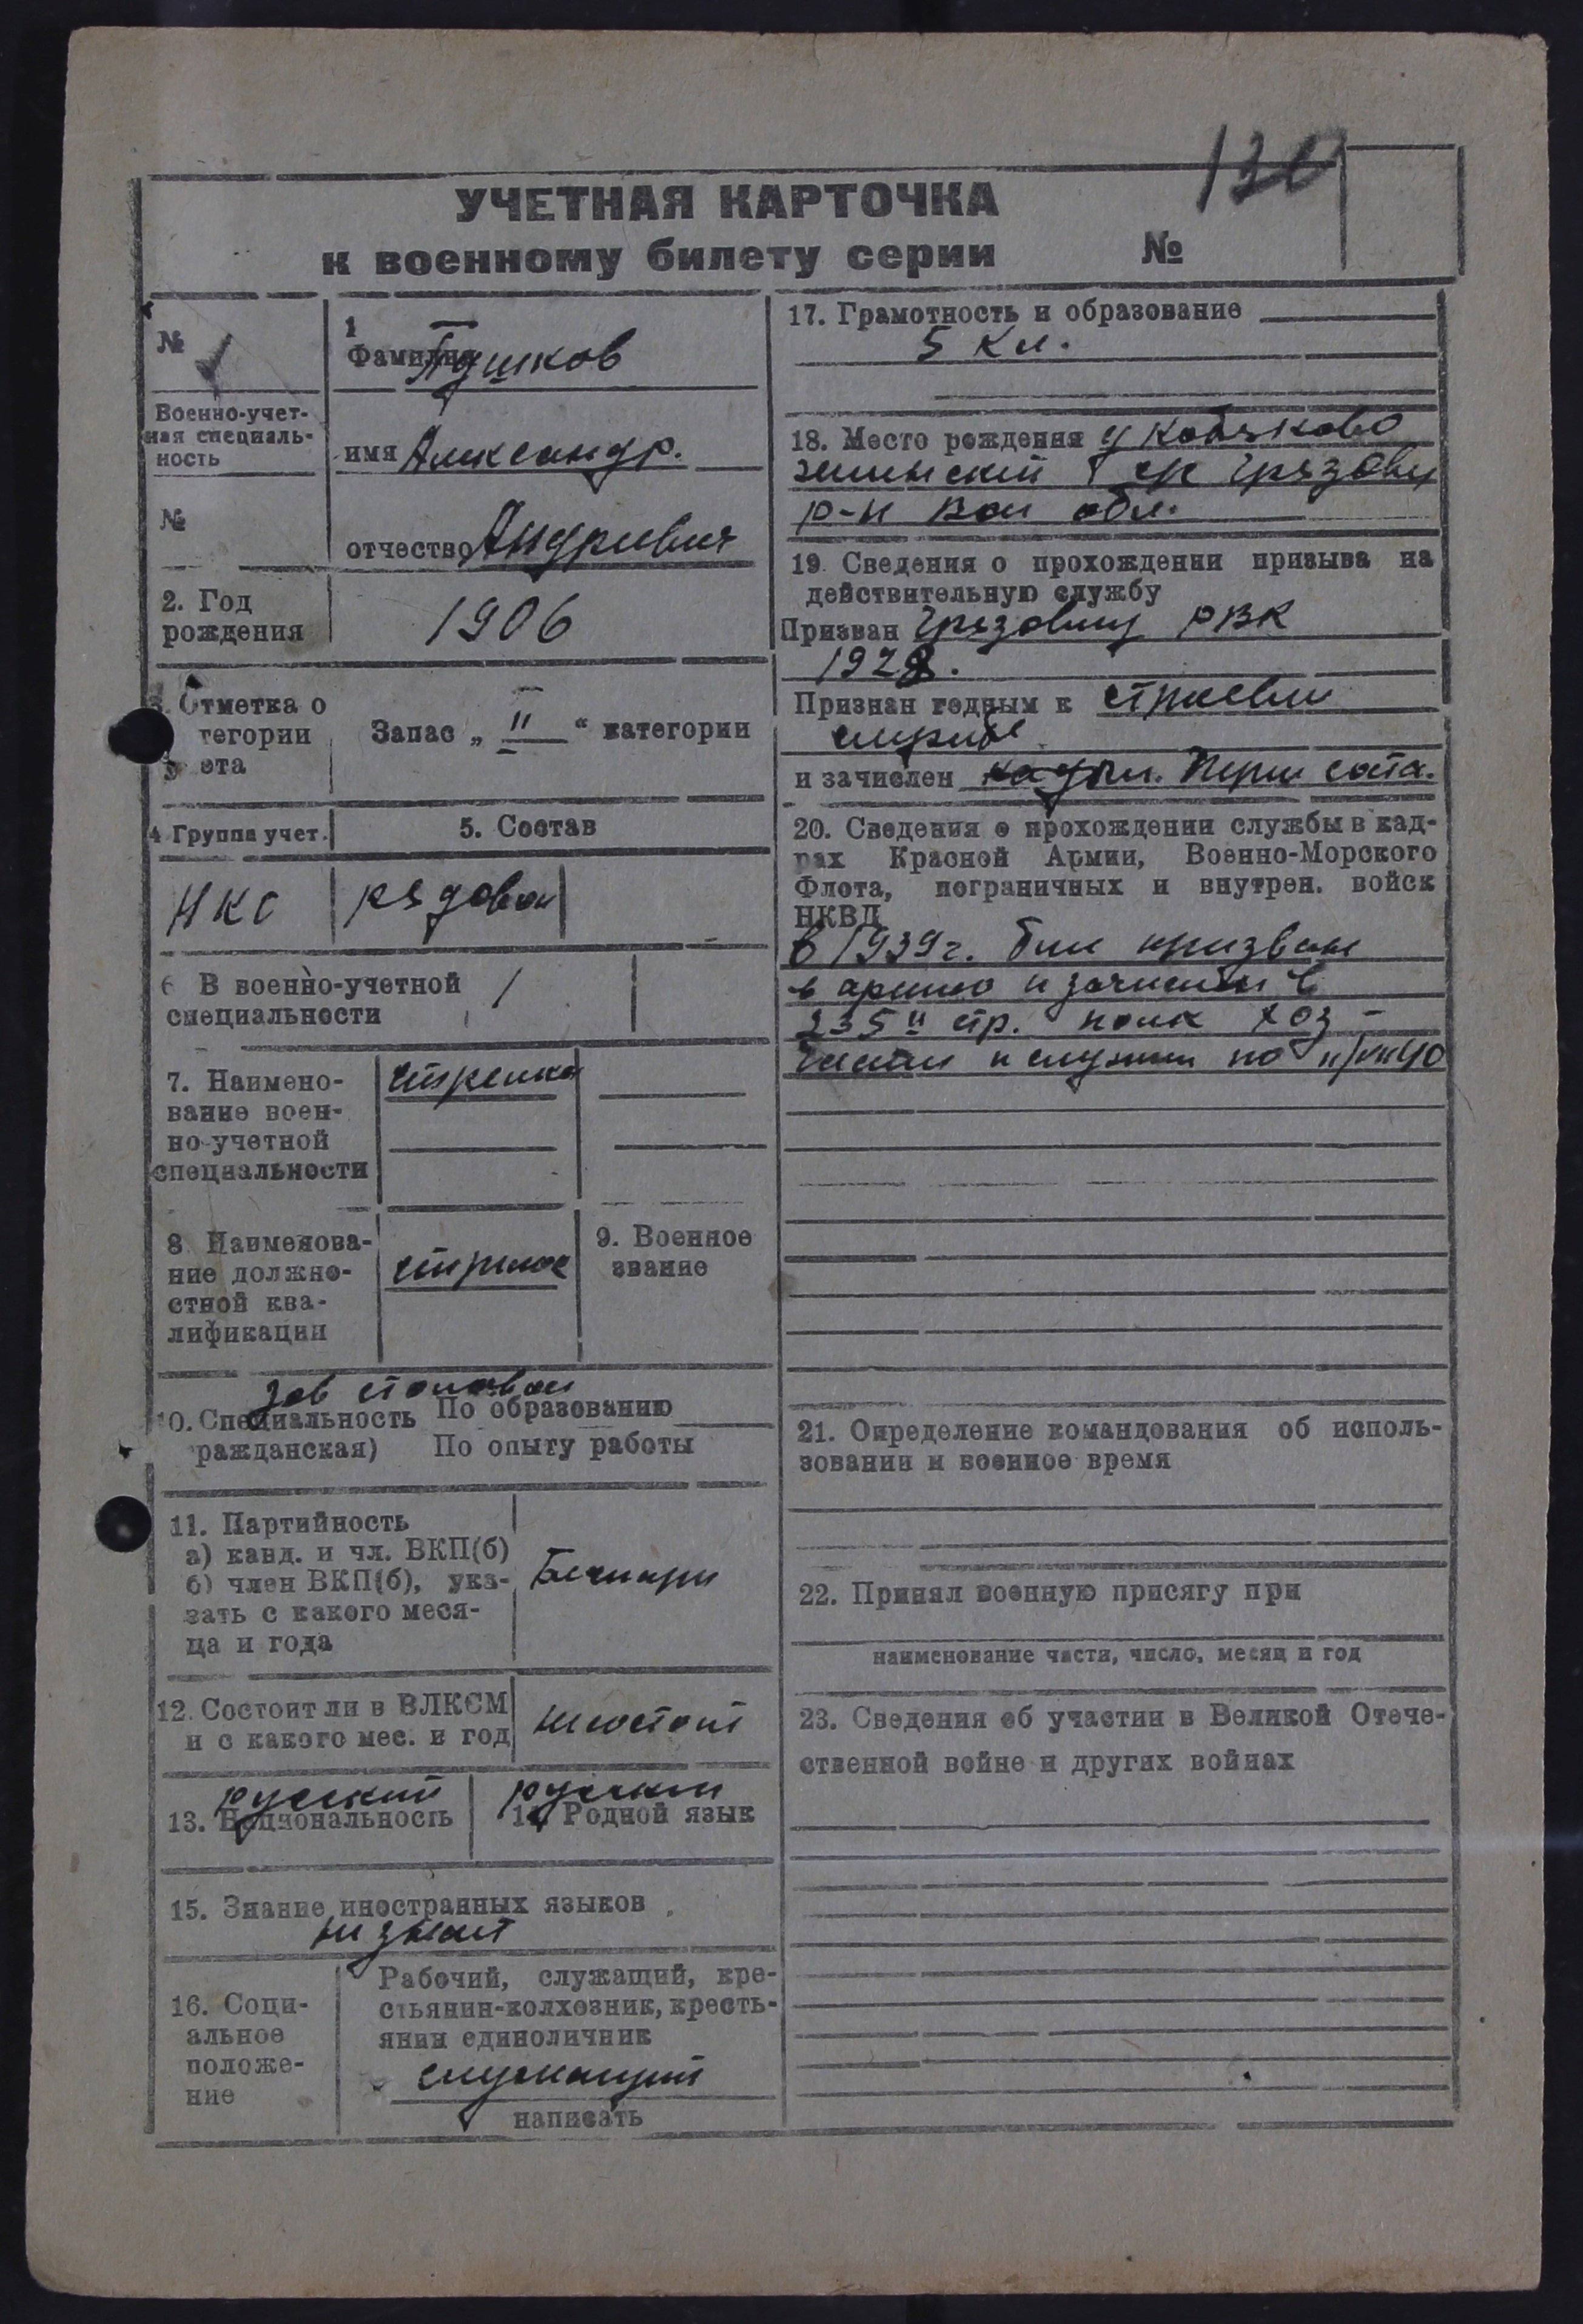 130
УЧЕТНАЯ КАРТОЧКА
к военному билету серии №
№
Военно-учет-
ная специаль-
ность
№
1
Фамилия Пушков
имя Александр.
отчество Андриевич
2. Год
рождения
1906
Отметка о
тегории
ета
Запас „ II “ категории
4 Группа учет.
5. Состав
НКС
рядовой
6 В военно-учетной
специальности
1
7. Наимено-
вание воен-
но-учетной
специальности
стрелков
8 Наименова-
ние должно-
стной ква-
лификации
стрелок
9. Военное
звание
зав столовой
10. Специальность По образованию
ражданская) По опыту работы
11. Партийность
а) канд. и чл. ВКП(б)
б) член ВКП(б), ука-
зать с какого меся-
ца и года
Беспарт
12. Состоит ли в ВЛКСМ
и с какого мес. и год
не состоит
русский
13. Национальность
русский
14 Родной язык
15. Знание иностранных языков
не знает
16. Соци-
альное
положе-
ние
Рабочий, служащий, кре-
стьянин-колхозник, кресть-
янин единоличник
служащий
написать
17. Грамотность и образование
5 кл.
18. Место рождения
с/с Грязовец
р-н Вол обл.
19. Сведения о прохождении призыва на
действительную службу
Призван Грязовец РВК
1928.
Признан годным к строевой
службе
и зачислен
20. Сведения о прохождении службы в кад-
рах Красной Армии, Военно-Морского
Флота, пограничных и внутрен. войск
НКВД
в 1939г. был призван
в армию и зачислен в
235й стр. полк хоз-
и служил по
21. Определение командования об исполь-
зовании и военное время
22. Принял военную присягу при
наименование части, число, месяц и год
23. Сведения об участии в Великой Отече-
ственной войне и других войнах